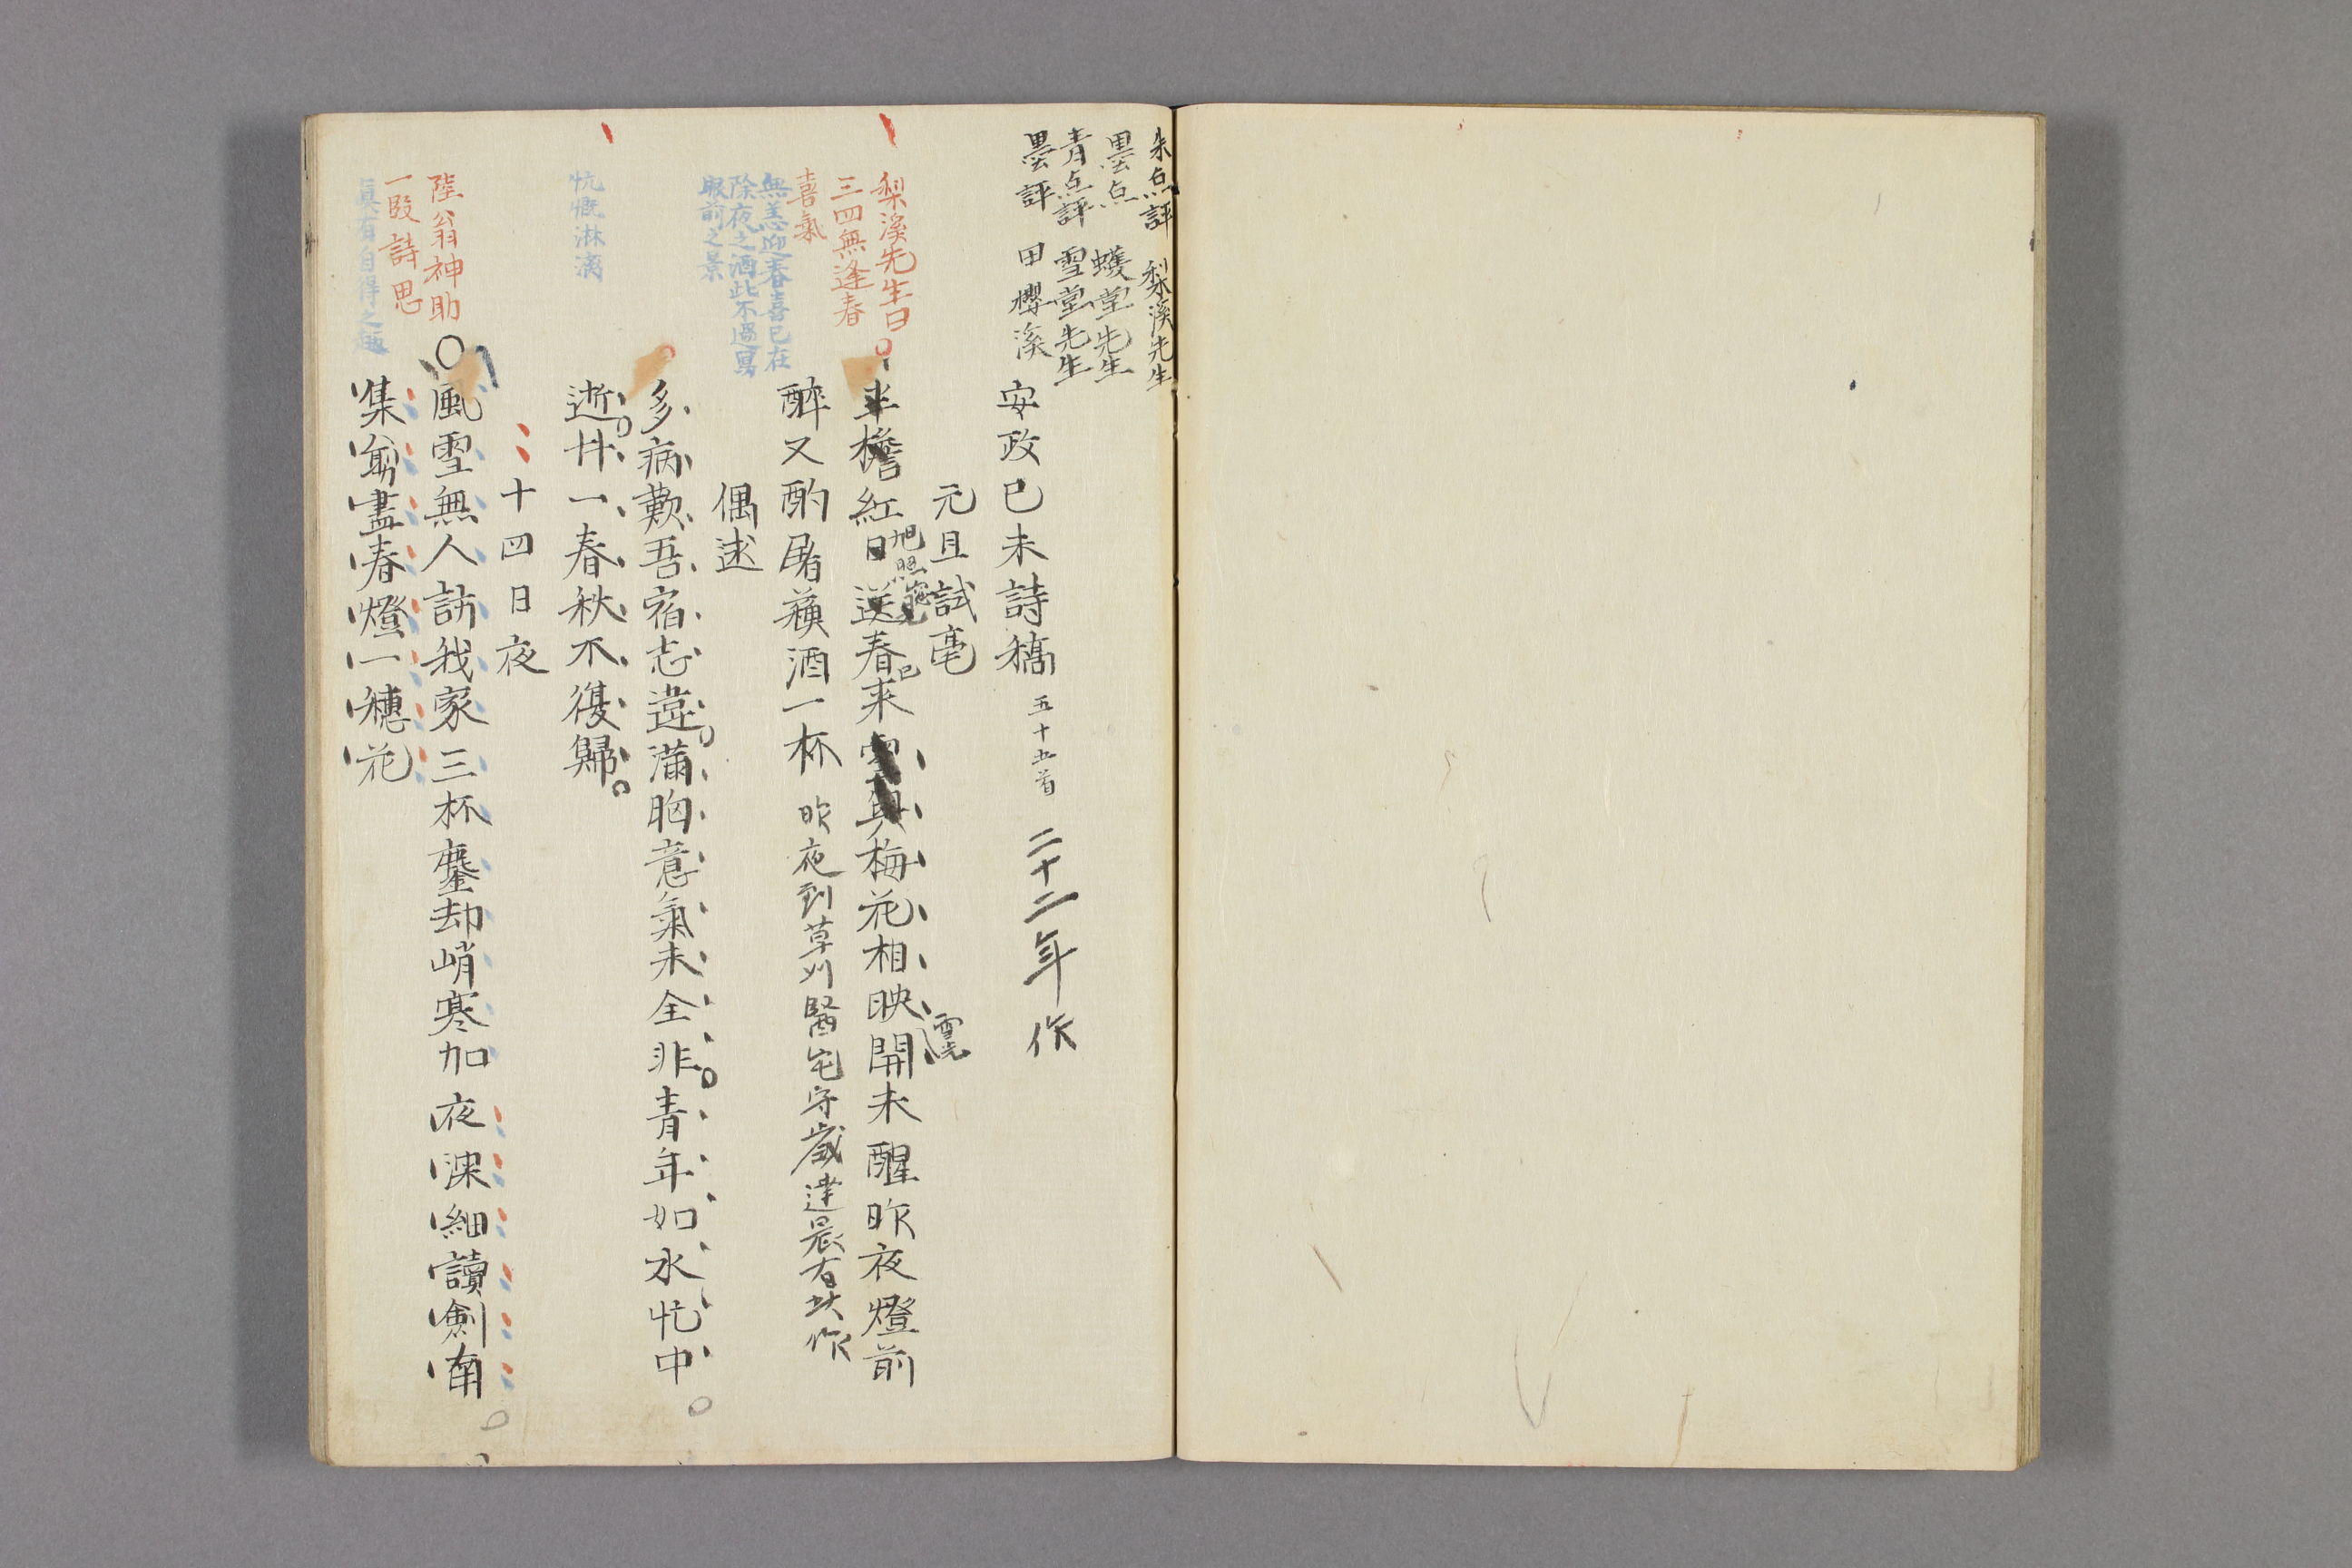 朱点評 梨溪先生
墨点 蠖堂先生
青点評 雪堂先生
墨評 田櫻溪
安政己未詩稿 五十五首 二十二年作
元旦試毫
梨溪先生曰
三四無逢春
喜氣
半檐紅日送春来 與梅花相映開未醒昨夜燈前
旭照窓
已
醉又酌屠蘓酒一杯 昨夜到草刈醫宅守歳達晨有此作
無恙迎春喜已在
除夜之酒此不過寫
眼前之景
偶述
多病歎吾宿志違滿胸意氣未全非青年如水忙中
逝廿一春秋不復歸
忼慨淋漓
十四日夜
陸翁神助
一段詩思
風雪無人訪我家三杯鏖却峭寒加夜深細讀劍南
集剪盡春燈一穗花
真有自得之趣